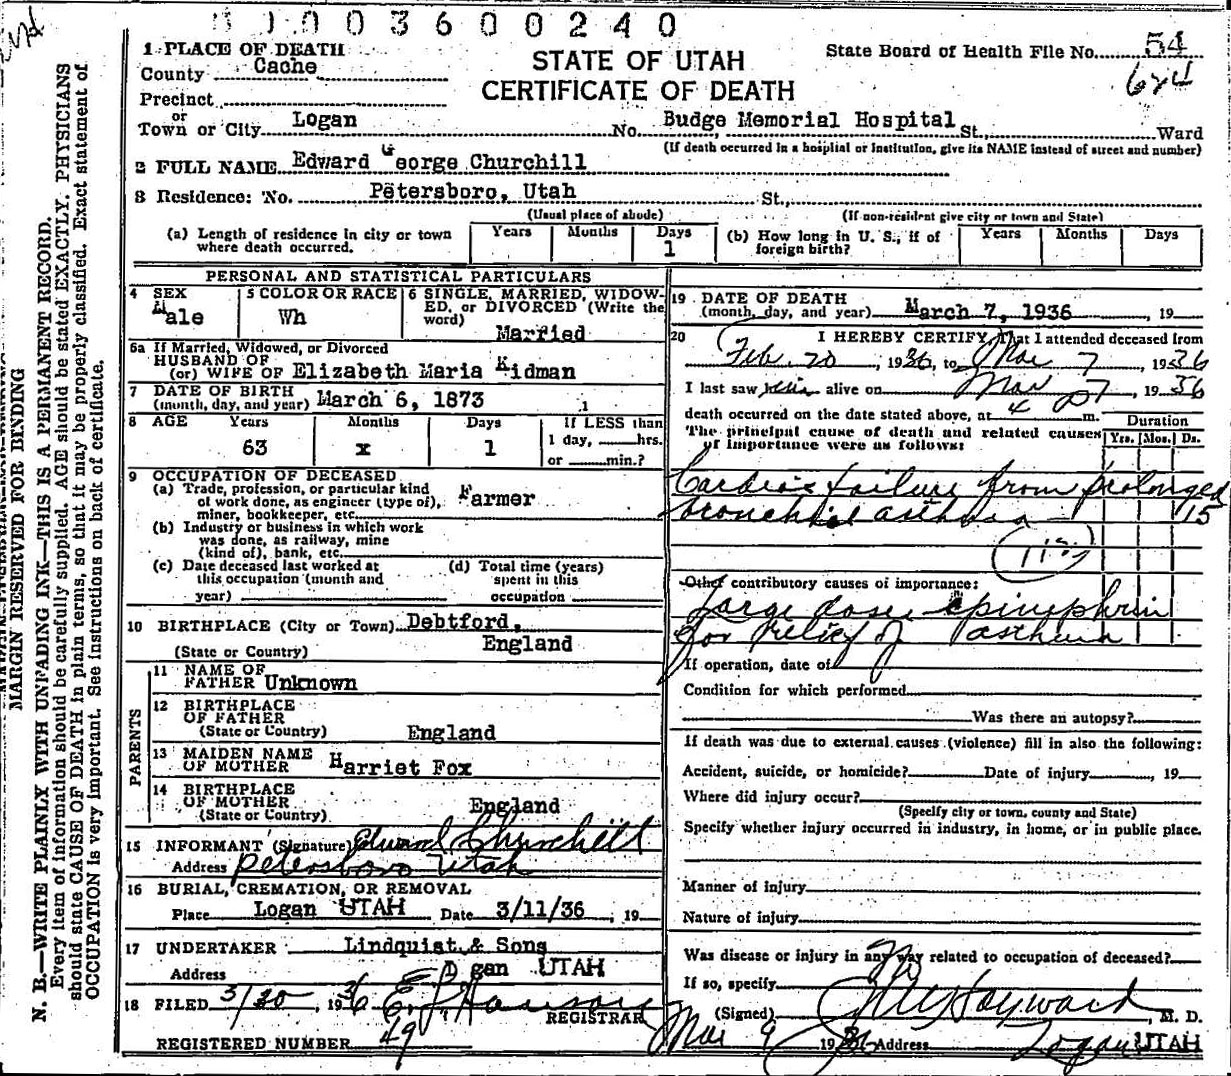 3600240
STATE OF UTAH
CERTIFICATE OF DEATH
State Board of Health File No. 54
624
1 PLACE OF DEATH
County Cache
Precinct
or
Town or City Logan No. Budge Memorial Hospital St., Ward
(If death occurred in a hospital or institution, give its NAME instead of street and number)
2 FULL NAME Edward George Churchill
3 Residence: No. Petersboro, Utah St.,
(Usual place of abode) (If non-resident give city or town and State)
(a) Length of residence in city or town where death occurred. Years Months Days 1
(b) How long in U. S., if of foreign birth? Years Months Days
PERSONAL AND STATISTICAL PARTICULARS
4 SEX Male
5 COLOR OR RACE Wh
6 SINGLE, MARRIED, WIDOWED, or DIVORCED (Write the word) Married
6a If Married, Widowed, or Divorced
HUSBAND OF
(or) WIFE OF Elizabeth Maria Kidman
7 DATE OF BIRTH
(month, day, and year) March 6, 1873
8 AGE Years 63 Months x Days 1
If LESS than 1 day, hrs. or min.?
9 OCCUPATION OF DECEASED
(a) Trade, profession, or particular kind of work done, as engineer (type of), miner, bookkeeper, etc. Farmer
(b) Industry or business in which work was done, as railway, mine (kind of), bank, etc.
(c) Date deceased last worked at this occupation (month and year)
(d) Total time (years) spent in this occupation
10 BIRTHPLACE (City or Town) Debtford,
(State or Country) England
PARENTS
11 NAME OF FATHER Unknown
12 BIRTHPLACE OF FATHER
(State or Country) England
13 MAIDEN NAME OF MOTHER Harriet Fox
14 BIRTHPLACE OF MOTHER
(State or Country) England
15 INFORMANT (Signature) Edward Churchill
Address Petersboro Utah
16 BURIAL, CREMATION, OR REMOVAL
Place Logan UTAH Date 3/11/36, 19
17 UNDERTAKER Lindquist & Sons
Address Logan UTAH
18 FILED 3/20, 1936
REGISTRAR
REGISTERED NUMBER 49
19 DATE OF DEATH
(month, day, and year) March 7, 1936, 19
20 I HEREBY CERTIFY, That I attended deceased from
Feb. 20, 1936, to Mar 7, 1936
I last saw him alive on Mar 7, 1936
death occurred on the date stated above, at 4 m.
The principal cause of death and related causes of importance were as follows:
Duration
Yrs. Mos. Ds.
Cardiac failure from prolonged
bronchial asthma 15
Other contributory causes of importance:
Large dose epinephrin
for relief of asthma
If operation, date of
Condition for which performed
Was there an autopsy?
If death was due to external causes (violence) fill in also the following:
Accident, suicide, or homicide? Date of injury, 19
Where did injury occur?
(Specify city or town, county and State)
Specify whether injury occurred in industry, in home, or in public place.
Manner of injury
Nature of injury
Was disease or injury in any way related to occupation of deceased? No
If so, specify
(Signed) Hayward, M. D.
Mar 9 1936 Address Logan UTAH
MARGIN RESERVED FOR BINDING
N. B.—WRITE PLAINLY WITH UNFADING INK—THIS IS A PERMANENT RECORD.
Every item of information should be carefully supplied. AGE should be stated EXACTLY. PHYSICIANS
should state CAUSE OF DEATH in plain terms, so that it may be properly classified. Exact statement of
OCCUPATION is very important. See instructions on back of certificate.